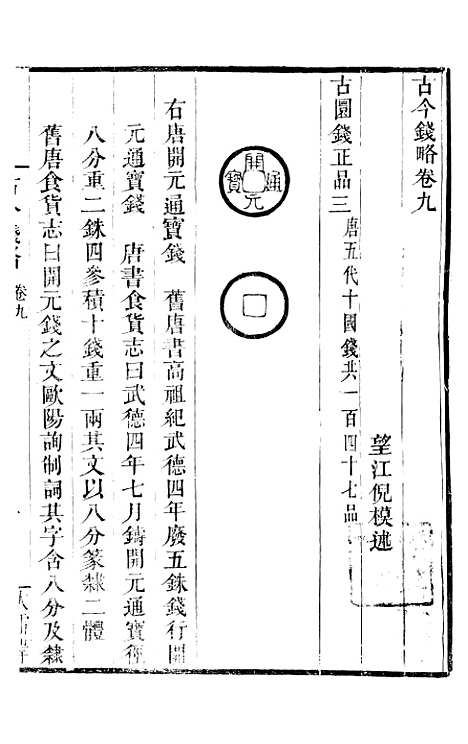 古今錢略卷九
望江倪模述
古圜錢正品三 唐五代十國錢共一百四十七品
開元通寶
右唐開元通寶錢 舊唐書高祖紀武德四年廢五銖錢行開
元通寶錢 唐書食貨志曰武德四年七月鑄開元通寶徑
八分重二銖四參積十錢重一兩其文以八分篆隸二體
舊唐食貨志曰開元錢之文歐陽詢制詞其字含八分及隸
卷九